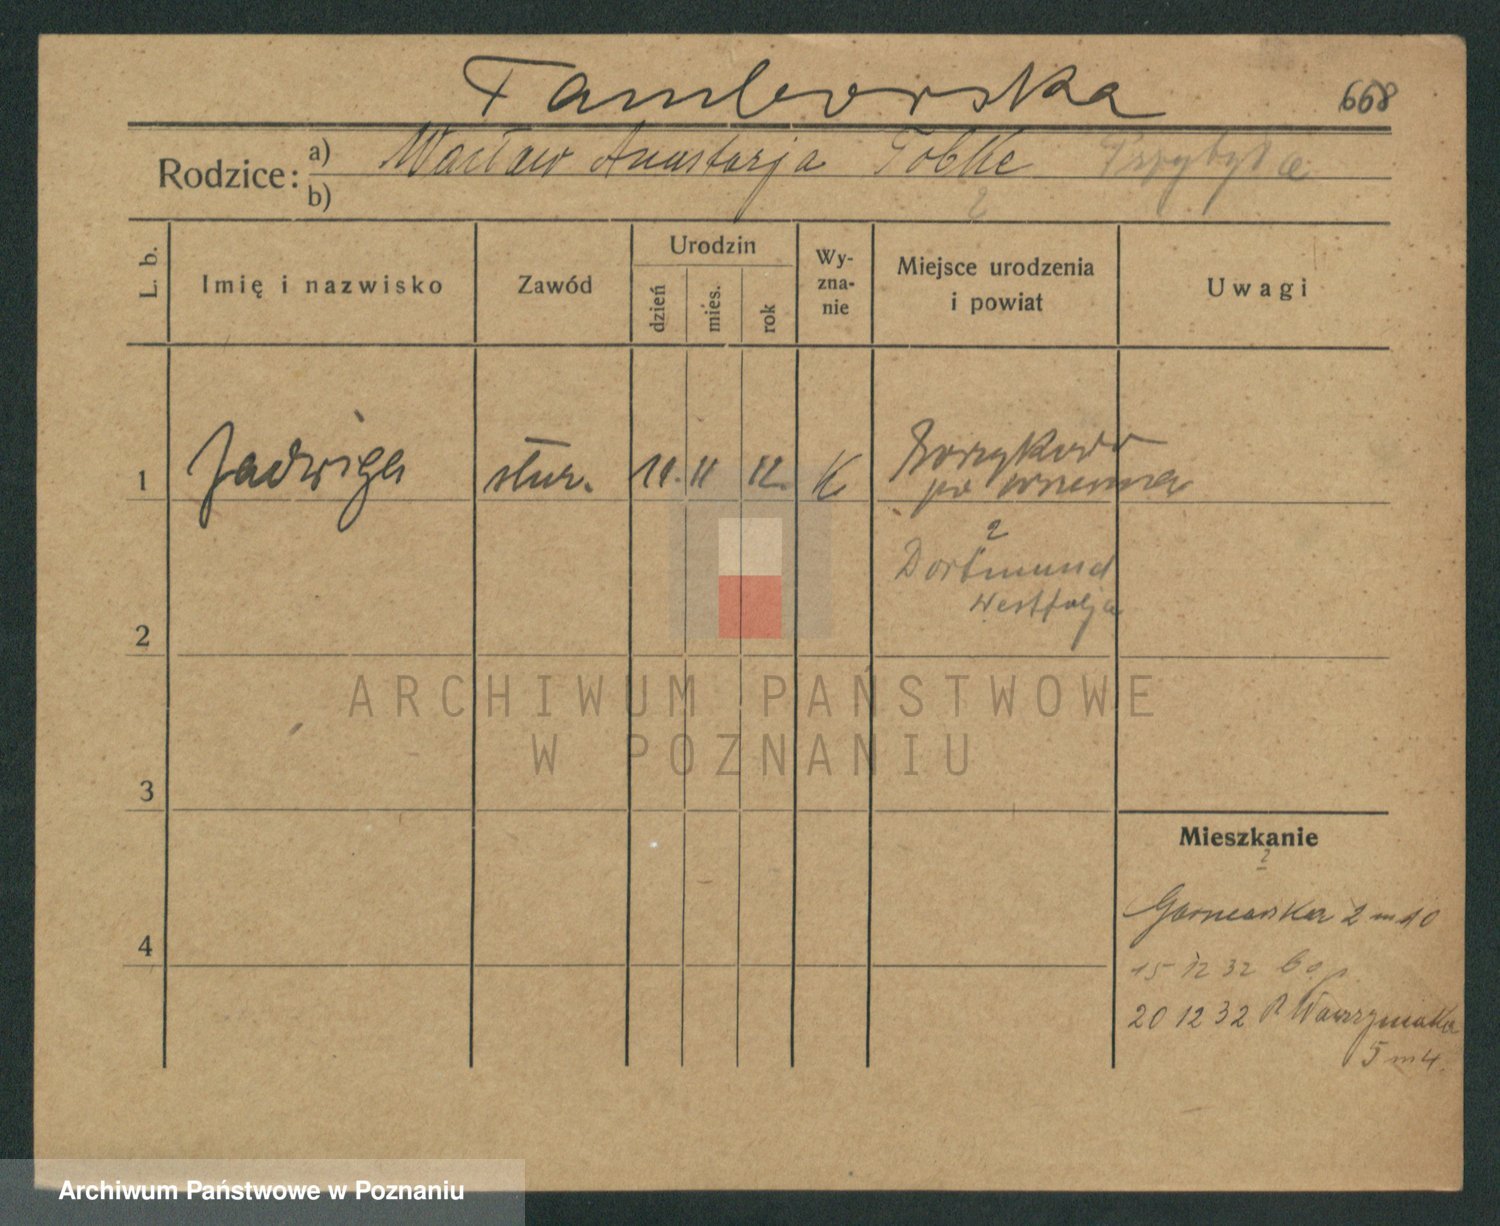 Tamborska 668
Rodzice: a) Wacław Anastazja Tobke Przybyła
b) 2
L. b. Imię i nazwisko Zawód Urodzin Wy-zna-nie Miejsce urodzenia i powiat Uwagi
dzień mies. rok
1 Jadwiga służ. 11. 11 12. K
2
Dortmund
Westfalja
2
3
4
Mieszkanie
2
2 m 10
15 12 32
20 12 32 P Wawrzyniaka
5 m 4.
ARCHIWUM PAŃSTWOWE
W POZNANIU
Archiwum Państwowe w Poznaniu